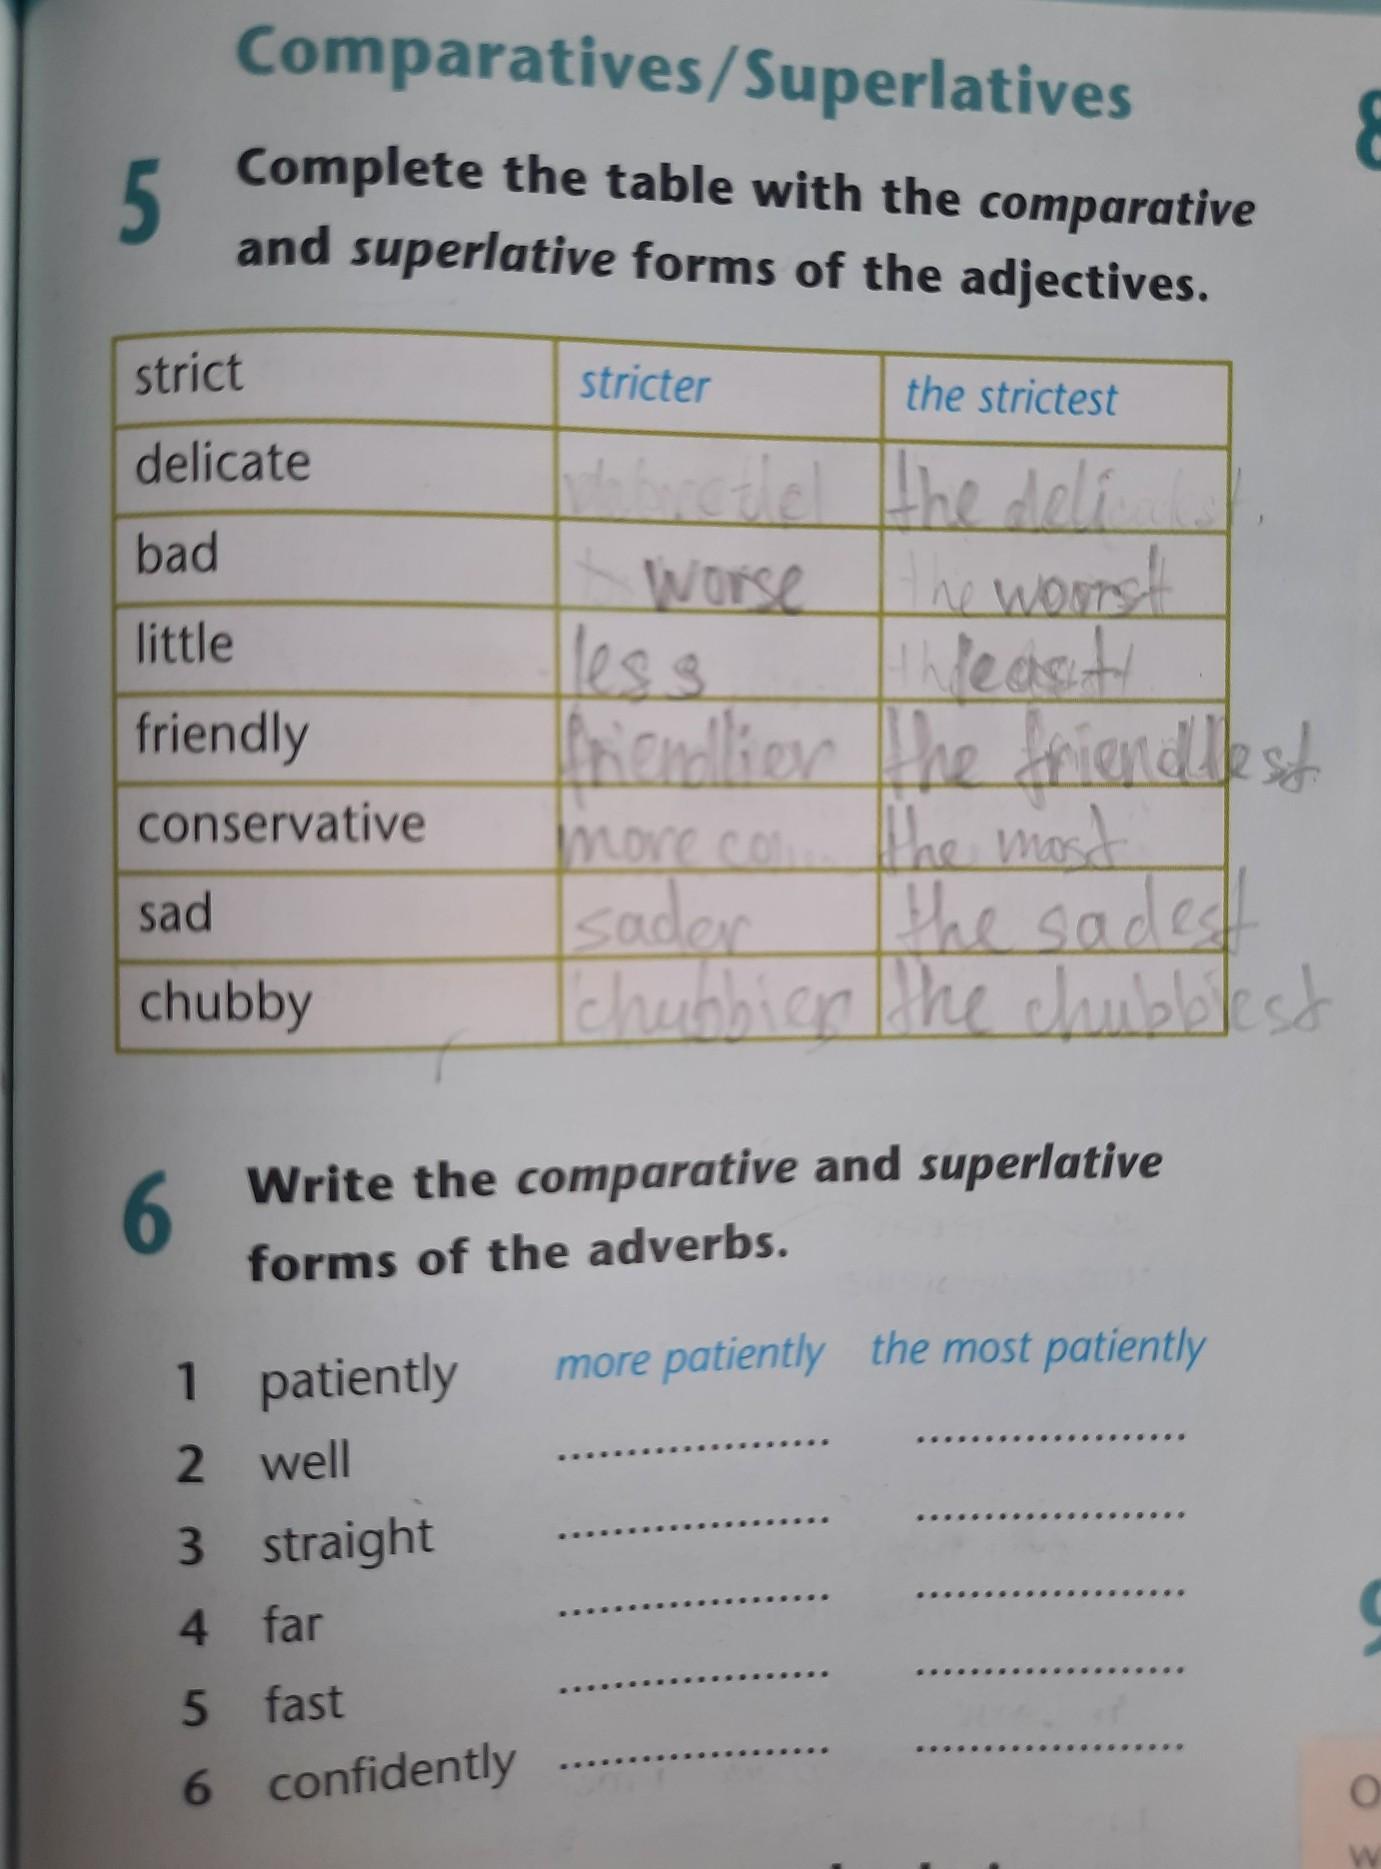 Comparatives/Superlatives
8
5 Complete the table with the comparative
and superlative forms of the adjectives.
strict stricter the strictest
delicate the deli
bad worse the woorst
little less least
friendly friendlier the friendlest
conservative more co... the most
sad sader the sadest
chubby chubbier the chubbiest
6 Write the comparative and superlative
forms of the adverbs.
1 patiently more patiently the most patiently
2 well .................... ....................
3 straight .................... ....................
4 far .................... ....................
5 fast .................... ....................
6 confidently .................... ....................
9